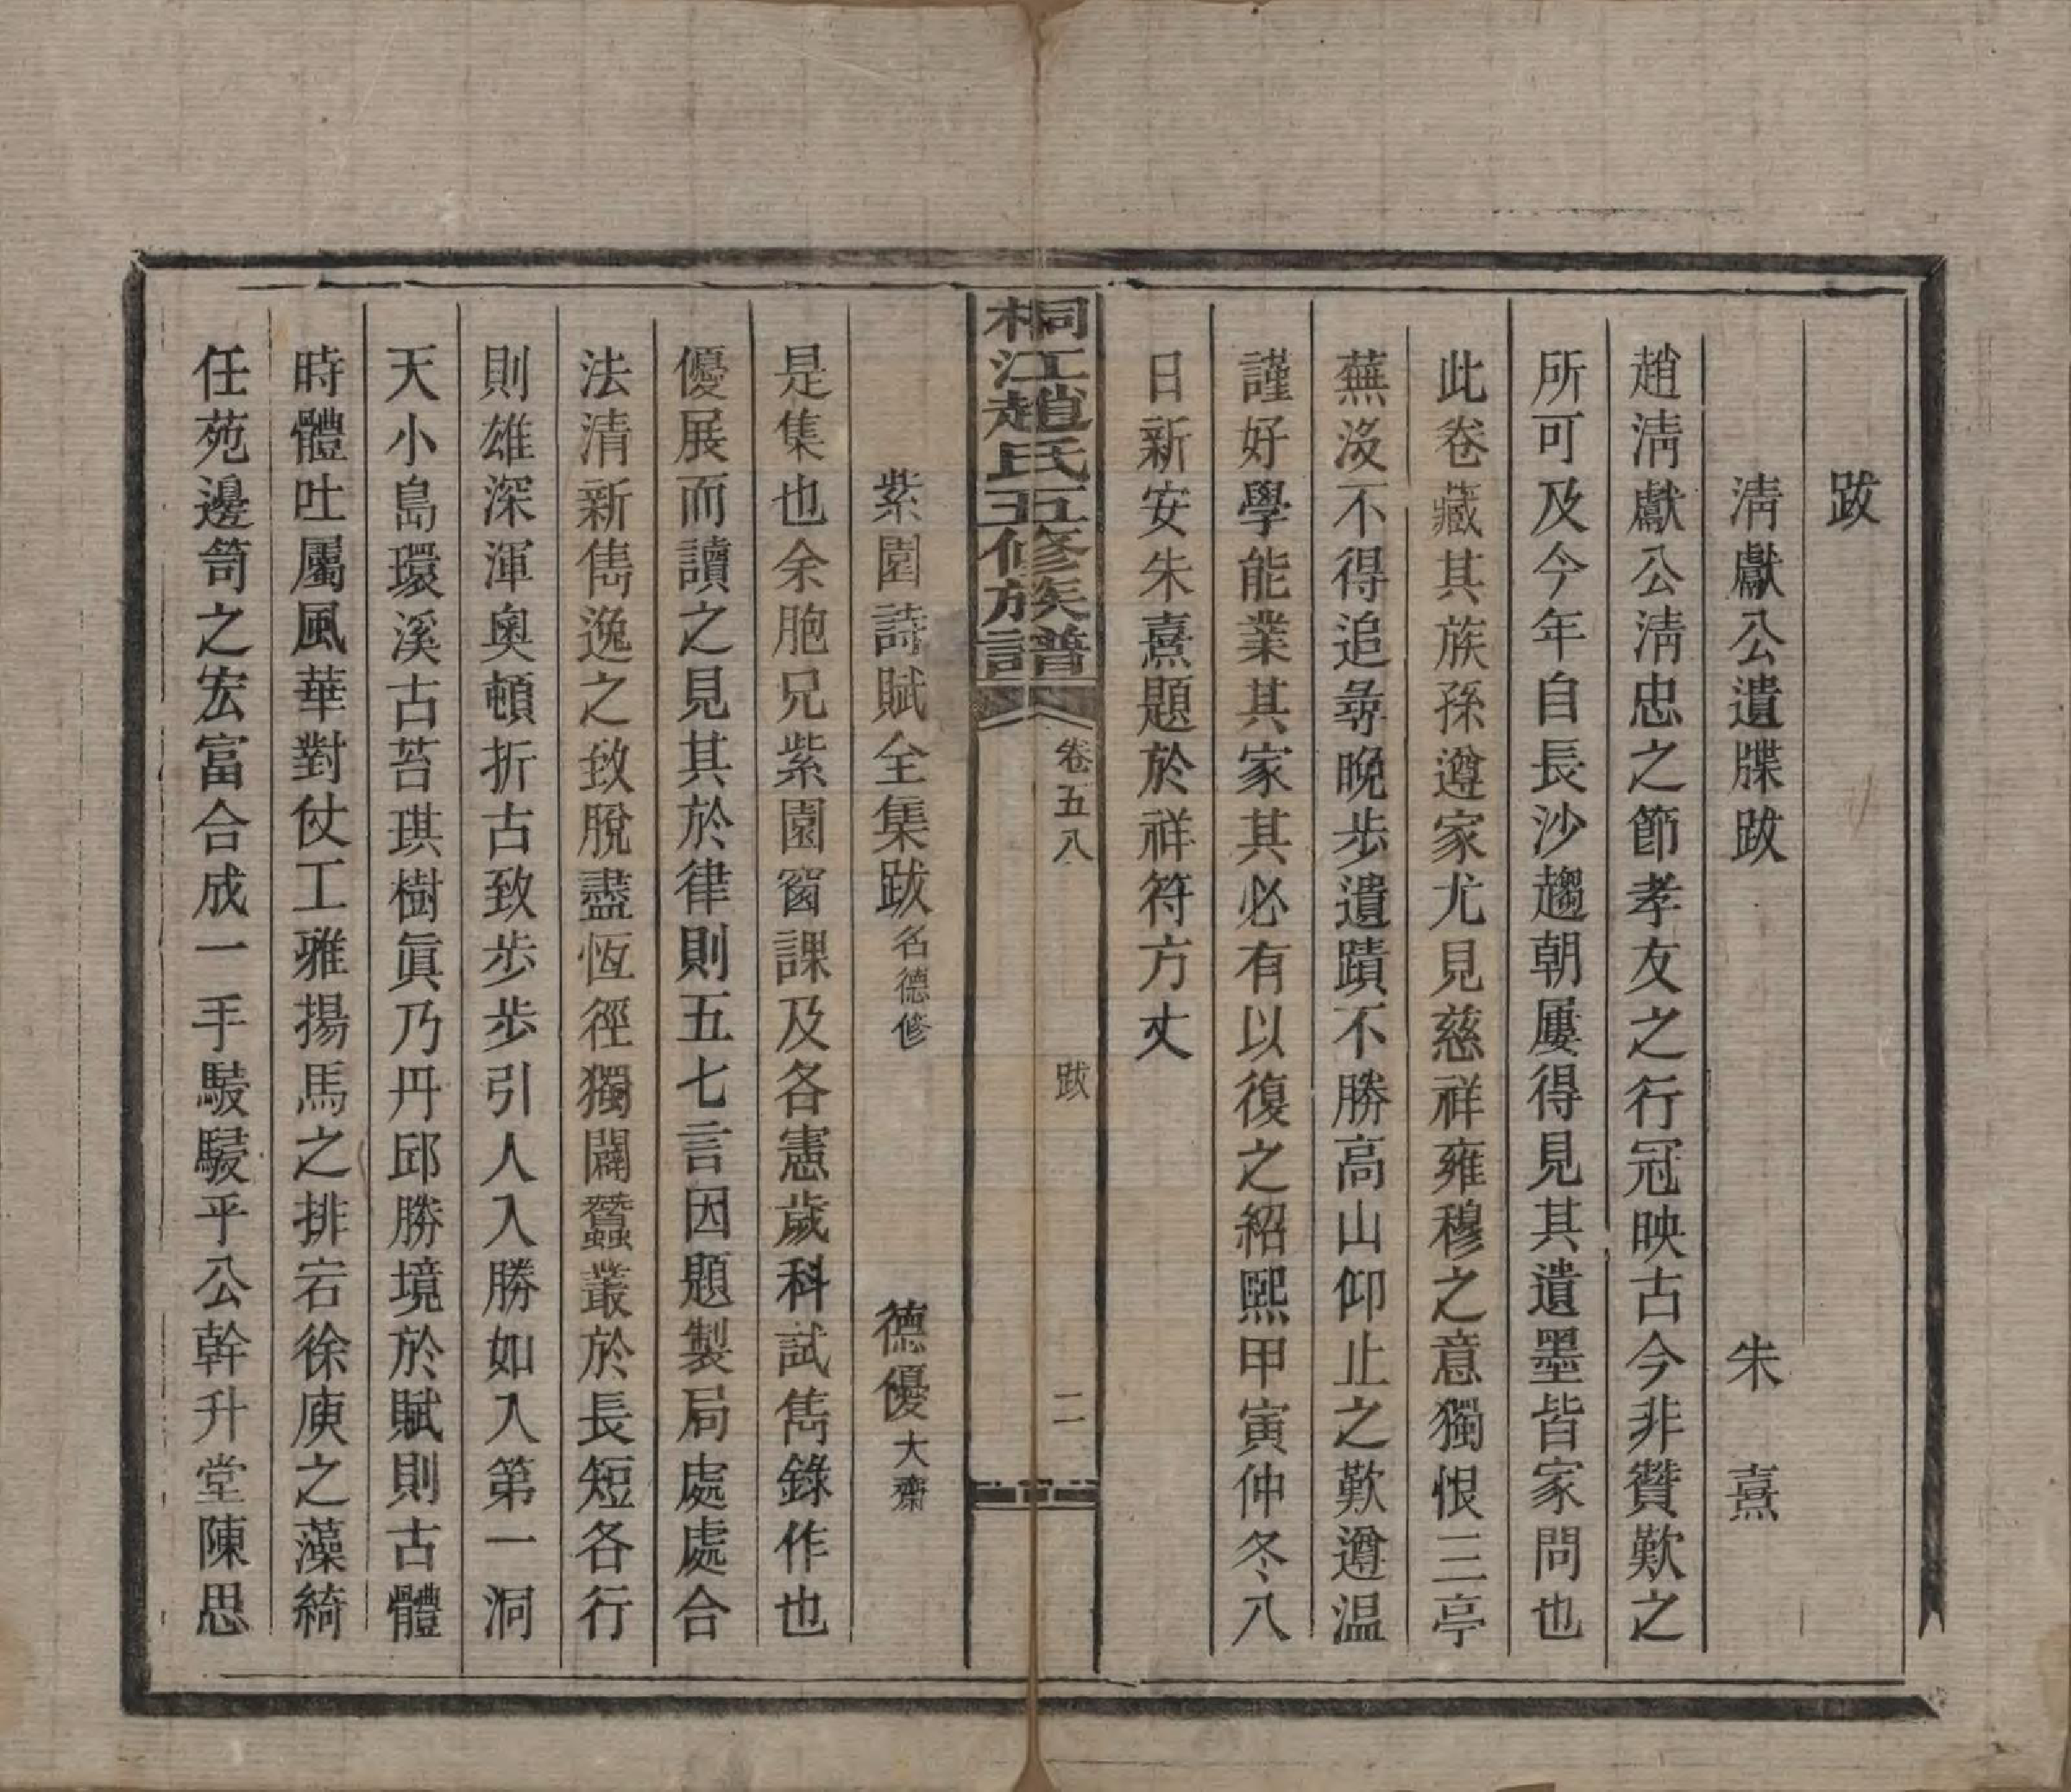 跋
清獻公遺牒跋　朱熹
趙淸獻公淸忠之節孝友之行冠映古今非贊歎之
所可及今年自長沙趨朝屢得見其遺墨皆家問也
此卷藏其族孫遵家尤見慈祥雍穆之意獨恨三亭
蕪沒不得追尋晚步遺蹟不勝高山仰止之歎遵温
謹好學能業其家其必有以復之紹熙甲寅仲冬八
日新安朱熹題於祥符方丈
桐江趙氏五修族譜　卷五八　跋　二
紫園詩賦全集跋名德修　德優大齋
是集也余胞兄紫園窗課及各憲歲科試雋錄作也
優展而讀之見其於律則五七言因題製局處處合
法清新雋逸之致脫盡恆徑獨闢蠶叢於長短各行
則雄深渾奥頓折古致步步引人入勝如入第一洞
天小島環溪古苔琪樹眞乃丹邱勝境於賦則古體
時體吐屬風華對仗工雅揚馬之排宕徐庾之藻綺
任苑邊笥之宏富合成一手駸駸乎公幹升堂陳思